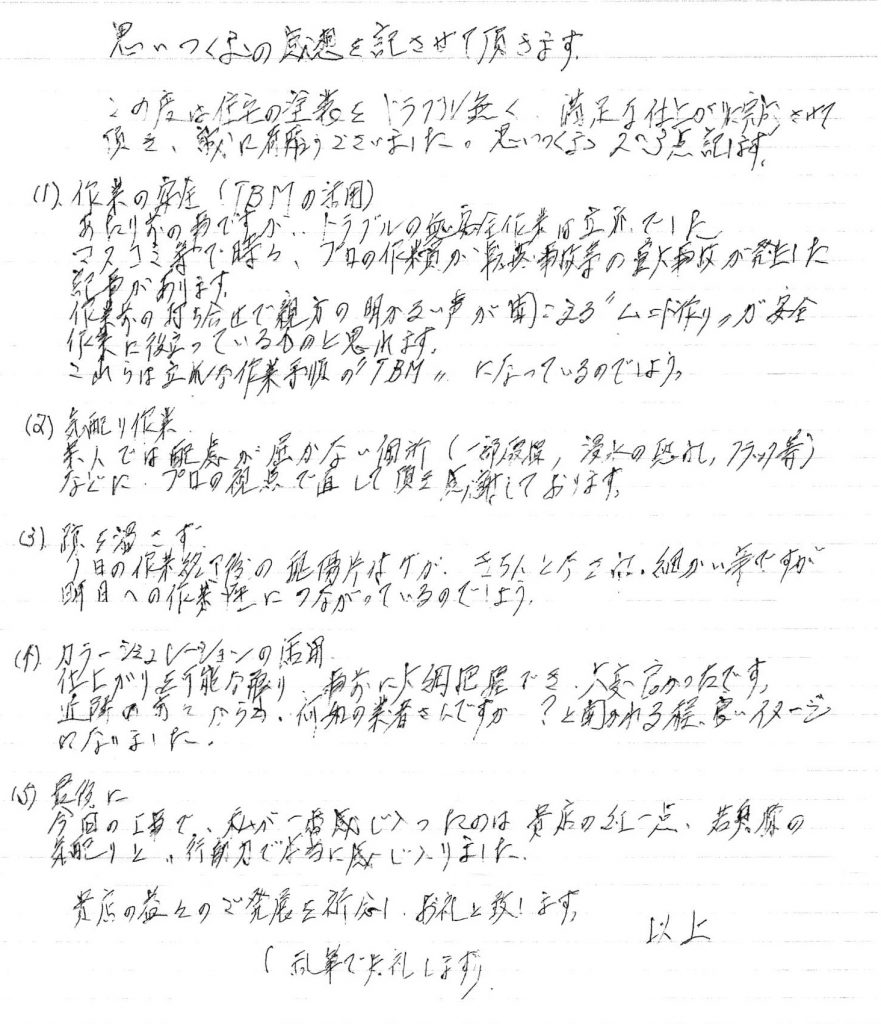 思いつくままの感想を記させて頂きます。
この度は住宅の塗装をトラブル無く、満足な仕上がりに完成させて
頂き、誠に有難うございました。思いつくまま2〜3点記します。
(1) 作業の安全(TBMの活用)
あたり前の事ですが、トラブルの無い安全作業は立派でした
マスコミ等で時々、プロの作業員が転落事故等の重大事故が発生した
記事があります。
作業前の打ち合せで親方の明かるい声が聞こえる〝ムード作り〟が安全
作業に役立っているものと思われます。
これらは立派な作業手順の〝TBM〟になっているのでしょう。
(2) 気配り作業
素人では配慮が届かない個所(一部破損, 浸水の恐れ, クラック等)
などに プロの視点で直して頂き感謝しております。
(3) 跡を濁さず
1日の作業終了後の 片付けが、きちんとなされ、細かい事ですが
明日への作業 につながっているのでしょう。
(4) カラーシュミレーションの活用
仕上がりを可能な限り 事前に大綱把握でき、大変良かったです。
近隣の方々からも、何処の業者さんですか?と聞かれる程、良いイメージ
になりました。
(5) 最後に
今回の工事で、私が一番感じ入ったのは 貴店の紅一点、若奥様の
気配りと、行動力で本当に感じ入りました。
貴店の益々のご発展を祈念し、お礼と致します。
以上
(乱筆で失礼します)